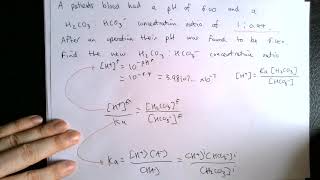 A patients blood had a pH of 6.00 and a
H₂CO₃ HCO₃⁻ concentration ratio of 1 :
After an operation their pH was found to be 6.
Find the new H₂CO₃ : HCO₃⁻ concentration ratio
[H⁺]ᶠ = 10^-pH
= 10^-6.4 = 3.9810... ×10⁻⁷
[H⁺] = Ka [H₂CO₃] / [HCO₃⁻]
[H⁺]ᶠ / Ka = [H₂CO₃]ᶠ / [HCO₃⁻]ᶠ
Ka = [H⁺][A⁻] / [HA] = [H⁺]ⁱ[HCO₃⁻]ⁱ / [H₂CO₃]ⁱ